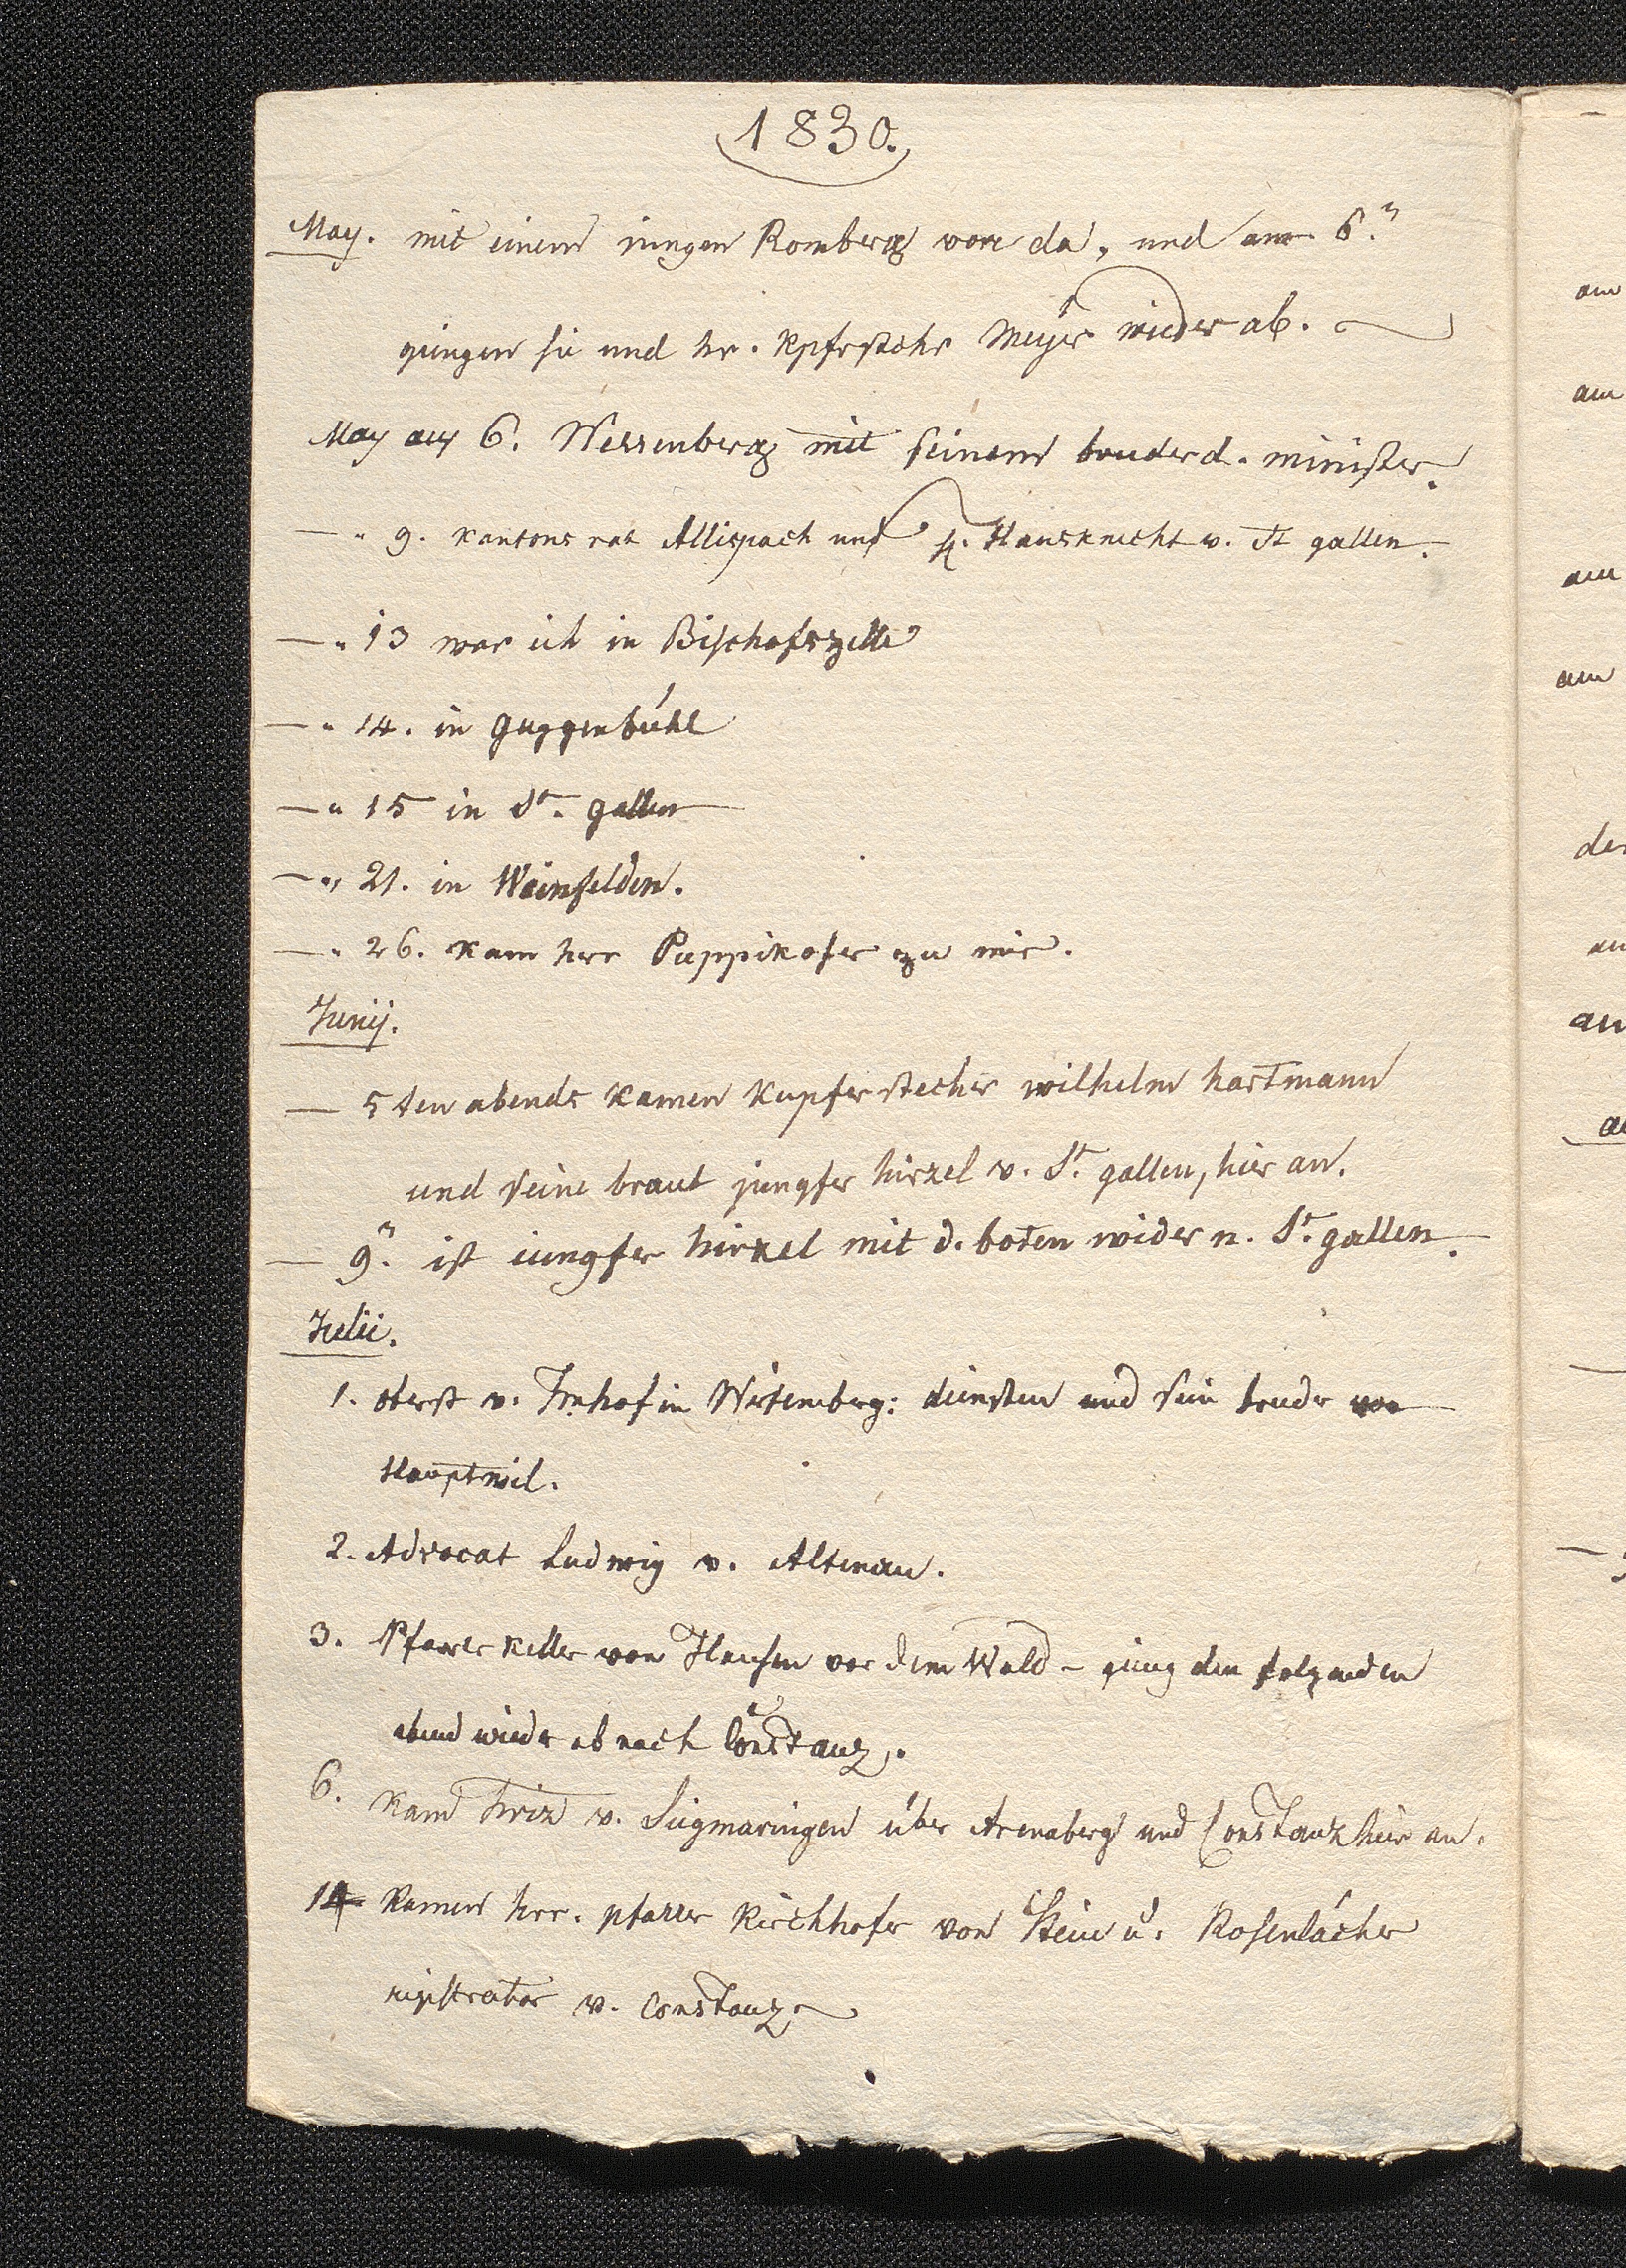 1830.
May. mit einem jungen Romberg vore da, und am 6.n
giengen sie und hr. Kpfrstchr Meyer wieder ab.
May am 6. Wessenberg mit seinem bruder d. minister.
— " 9. Kantons rat Allispach und H. Hausknecht v. St gallen.
— " 13 war ich in Bischofszelle
— " 14. in Guggenbühl
— " 15 in St. gallen
— " 21. in Weinfelden.
— " 26. kam herr Puppikofer zu mir.
Junij.
— 5ten abends kamen Kupferstecher wilhelm hartmann
und seine braut jungfer hirzel v. St. gallen, hier an.
— 9.n ist jungfer hirzel mit d. boten wider n. St. gallen.
Julii.
1. oberst v. Imhof in Wirtemberg: diensten und sein bruder von
Hauptwil.
2. Advocat Ludwig v. Altnau.
3. Pfarrer Keller von Hausen vor dem Wald – gieng den folgenden
abend wieder ab nach Constanz.
6. kam hirz v. Sigmaringen über Arenaberg und Constanz hier an.
14 kamen hrr. pfarrer Kirchhofer von Stein u. Rosenlächer
registrator v. Constanz.
am
am
am
am